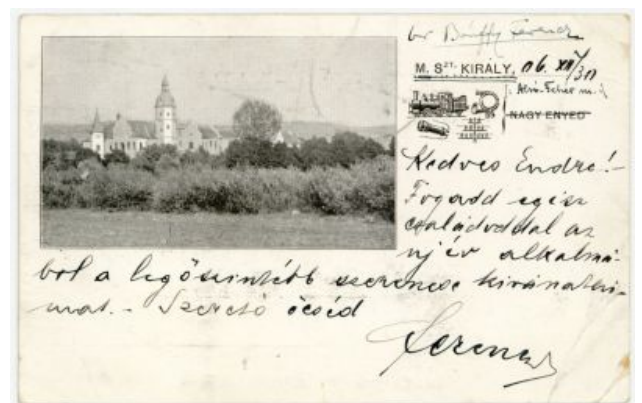 br Bánffy Ferencz
M. SZT. KIRÁLY, 06. XII/30
Alsó-Fehér m.
NAGY ENYED
Kedves Endre! -
Fogadd egész
családoddal az
uj év alkalmá-
ból a legőszintébb szerencse kivánatai-
mat. - Szerető öcséd
Ferencz